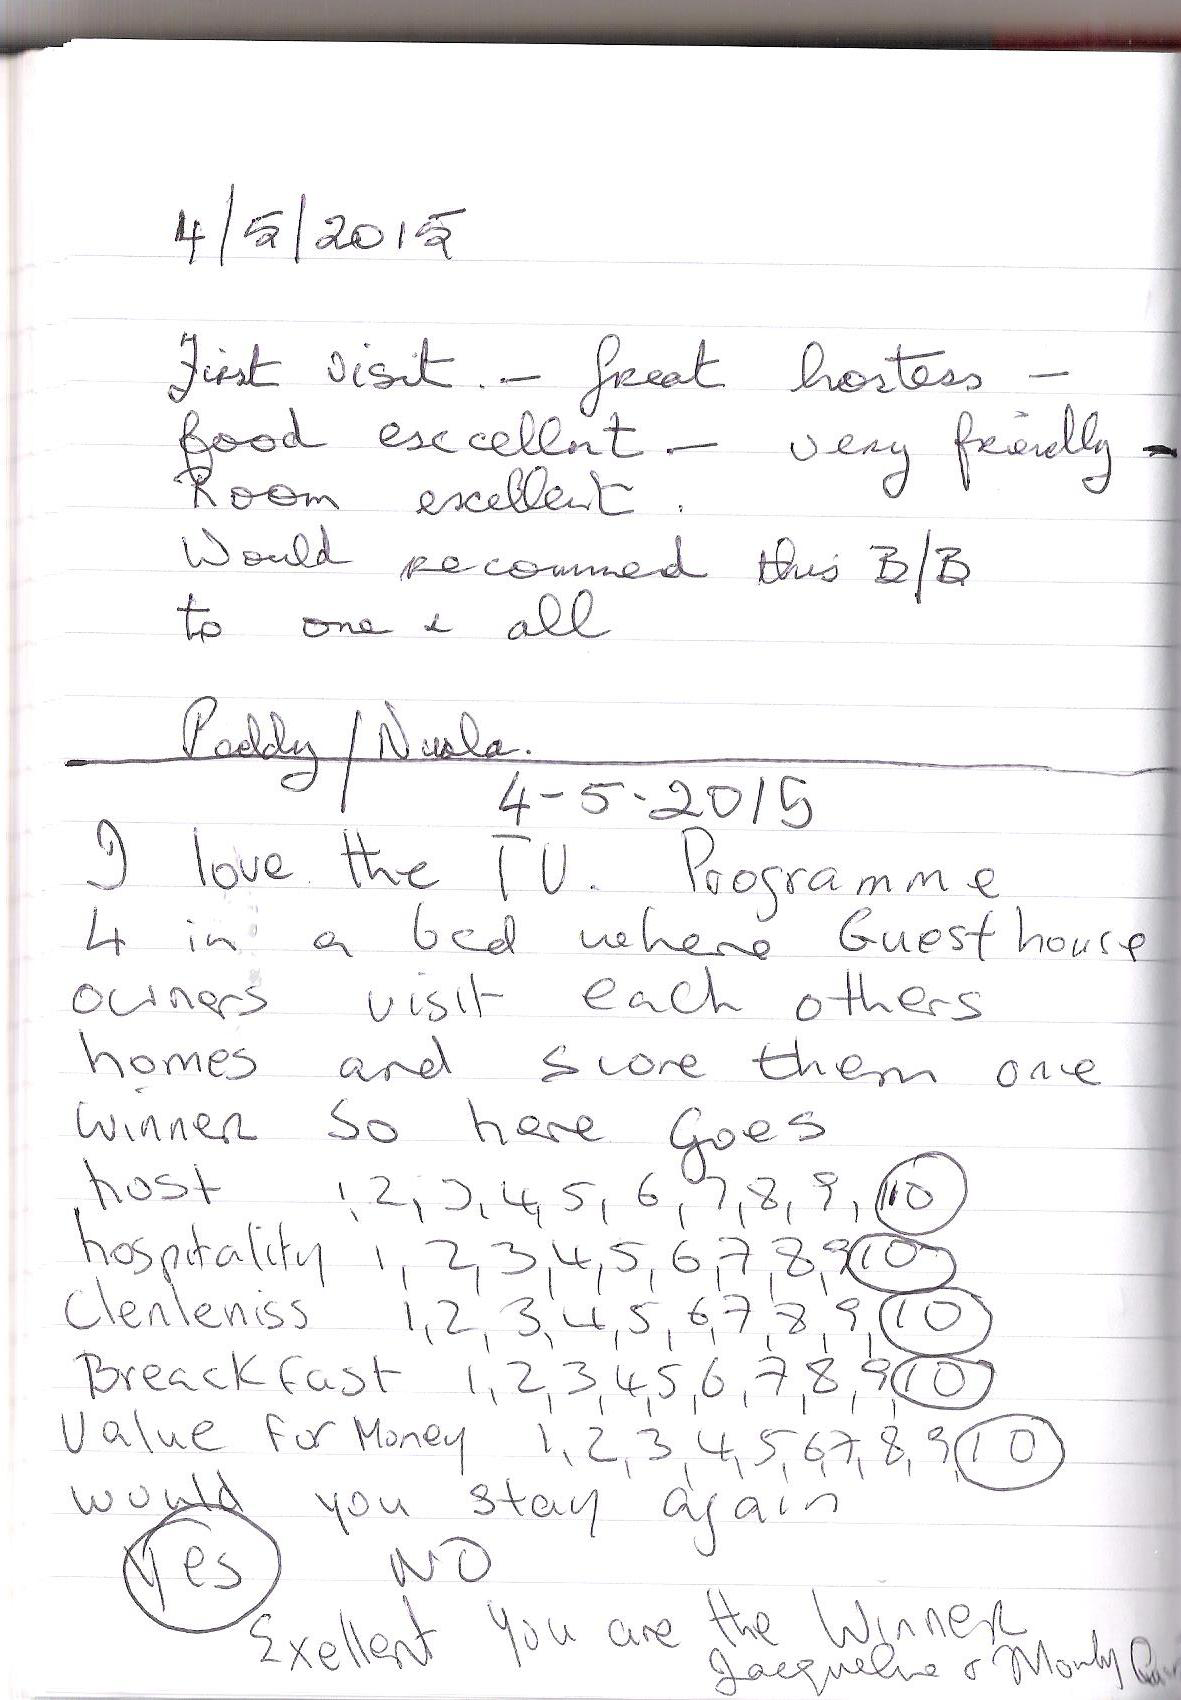 4/5/2015
First visit. - great hostess -
food excellent - very friendly -
Room excellent.
Would recommed this B/B
to one & all
Paddy/Nuala.
4-5-2015
I love the TV. Programme
4 in a bed where Guest house
owners visit each others
homes and score them one
winner So here Goes
host 1,2,3,4,5,6,7,8,9,10
hospitality 1,2,3,4,5,6,7,8,9,10
Clenleniss 1,2,3,4,5,6,7,8,9,10
Breackfast 1,2,3,4,5,6,7,8,9,10
Value For Money 1,2,3,4,5,6,7,8,9,10
would you stay again
Yes NO
Exellent You are the Winner
Jacqueline &